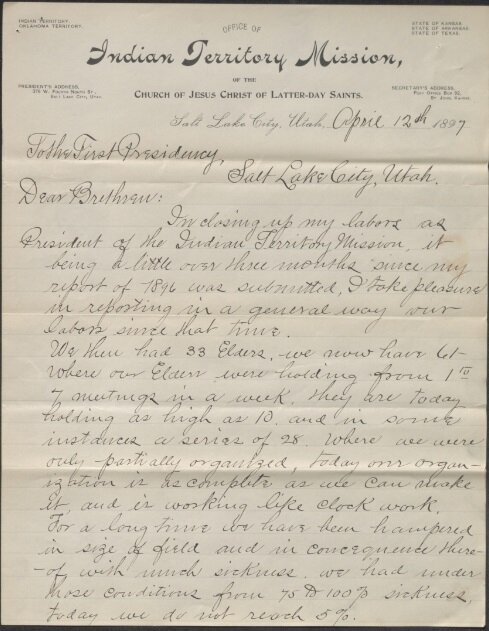 OFFICE OF
INDIAN TERRITORY.
OKLAHOMA TERRITORY.
STATE OF KANSAS.
STATE OF ARKANSAS.
STATE OF TEXAS.
Indian Territory Mission,
OF THE
CHURCH OF JESUS CHRIST OF LATTER-DAY SAINTS.
PRESIDENT'S ADDRESS,
SALT LAKE CITY, UTAH.
SECRETARY'S ADDRESS,
POST OFFICE BOX 92,
ST. JOHN, KANSAS.
Salt Lake City, Utah, April 12th 1897
To the First Presidency,
Salt Lake City, Utah.
Dear Brethren:
In closing up my labors as
President of the Indian Territory Mission, it
being a little over three months since my
report of 1896 was submitted, I take pleasure
in reporting in a general way our
labors since that time.
We then had 33 Elders, we now have 61
Where our Elders were holding from 1 to
7 meetings in a week, they are today
holding as high as 10. and in some
instances a series of 28. Where we were
only partially organized, today our organ-
ization is as complete as we can make
it, and is working like clock work.
For a long time we have been hampered
in size of field and in concequence there-
-of with much sickness. we had under
those conditions from 75 to 100% sickness,
today we do not reach 5%.